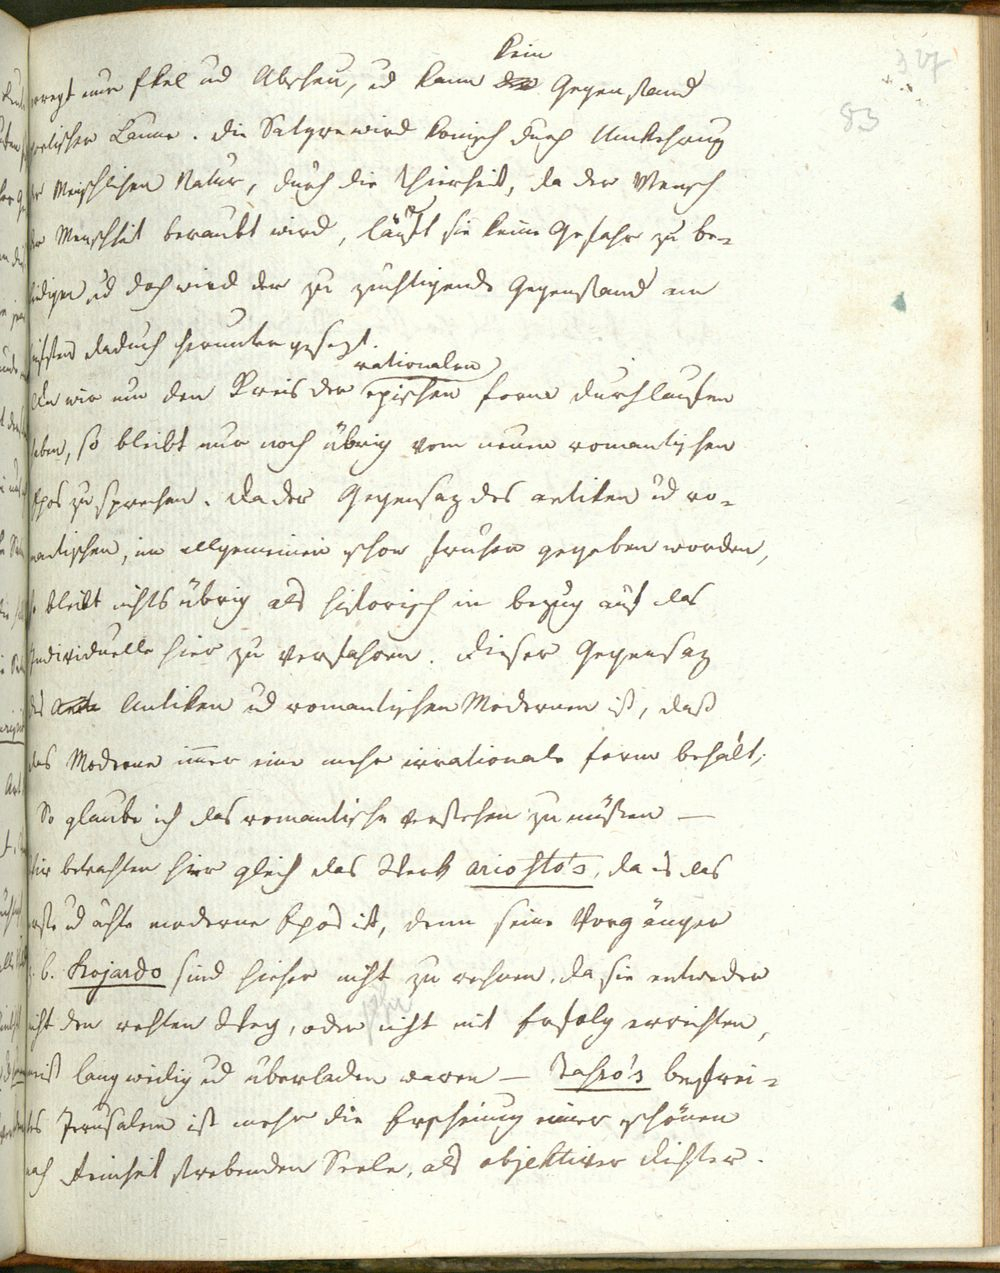 327
83
kein
erregt nur Ekel ud Abscheu, ud kann Gegenstand
poetischer Laune. Die Satyre wird komisch durch Umkehrung
der Menschlichen Natur, durch die Thierheit, da der Mensch
der Menschheit beraubt wird, läuft sie keine Gefahr zu be-
leidigen ud doch wird der zu züchtigende Gegenstand am
meisten dadurch heruntergesezt.
rationalen
Da wir nun den Kreis der epischen Form durchlaufen
haben, so bleibt nur noch übrig vom neuen romantischen
Epos zu sprechen. Da der Gegensaz des antiken ud ro-
mantischen, im allgemeinen schon früher gegeben worden,
so bleibt nichts übrig als historisch in bezug auf das
Individuelle hier zu verfahren. Dieser Gegensaz
des Antiken ud romantischen Modernen ist, daß
das Moderne immer eine mehr irrationale Form behält;
So glaube ich das romantische verstehen zu müßen —
Wir betrachten hier gleich das Werk Ariosto's, da es das
erste ud ächte moderne Epos ist, denn seine Vorgänger
z. b. Bojardo sind hieher nicht zu rechnen, da sie entweder
nicht den rechten Weg, oder nicht mit Erfolg erreichten,
meist langweilig ud überladen waren — Tasso's befrei-
tes Jerusalem ist mehr die Erscheinung einer schönen
nach Reinheit strebenden Seele, als objektiver Dichter.